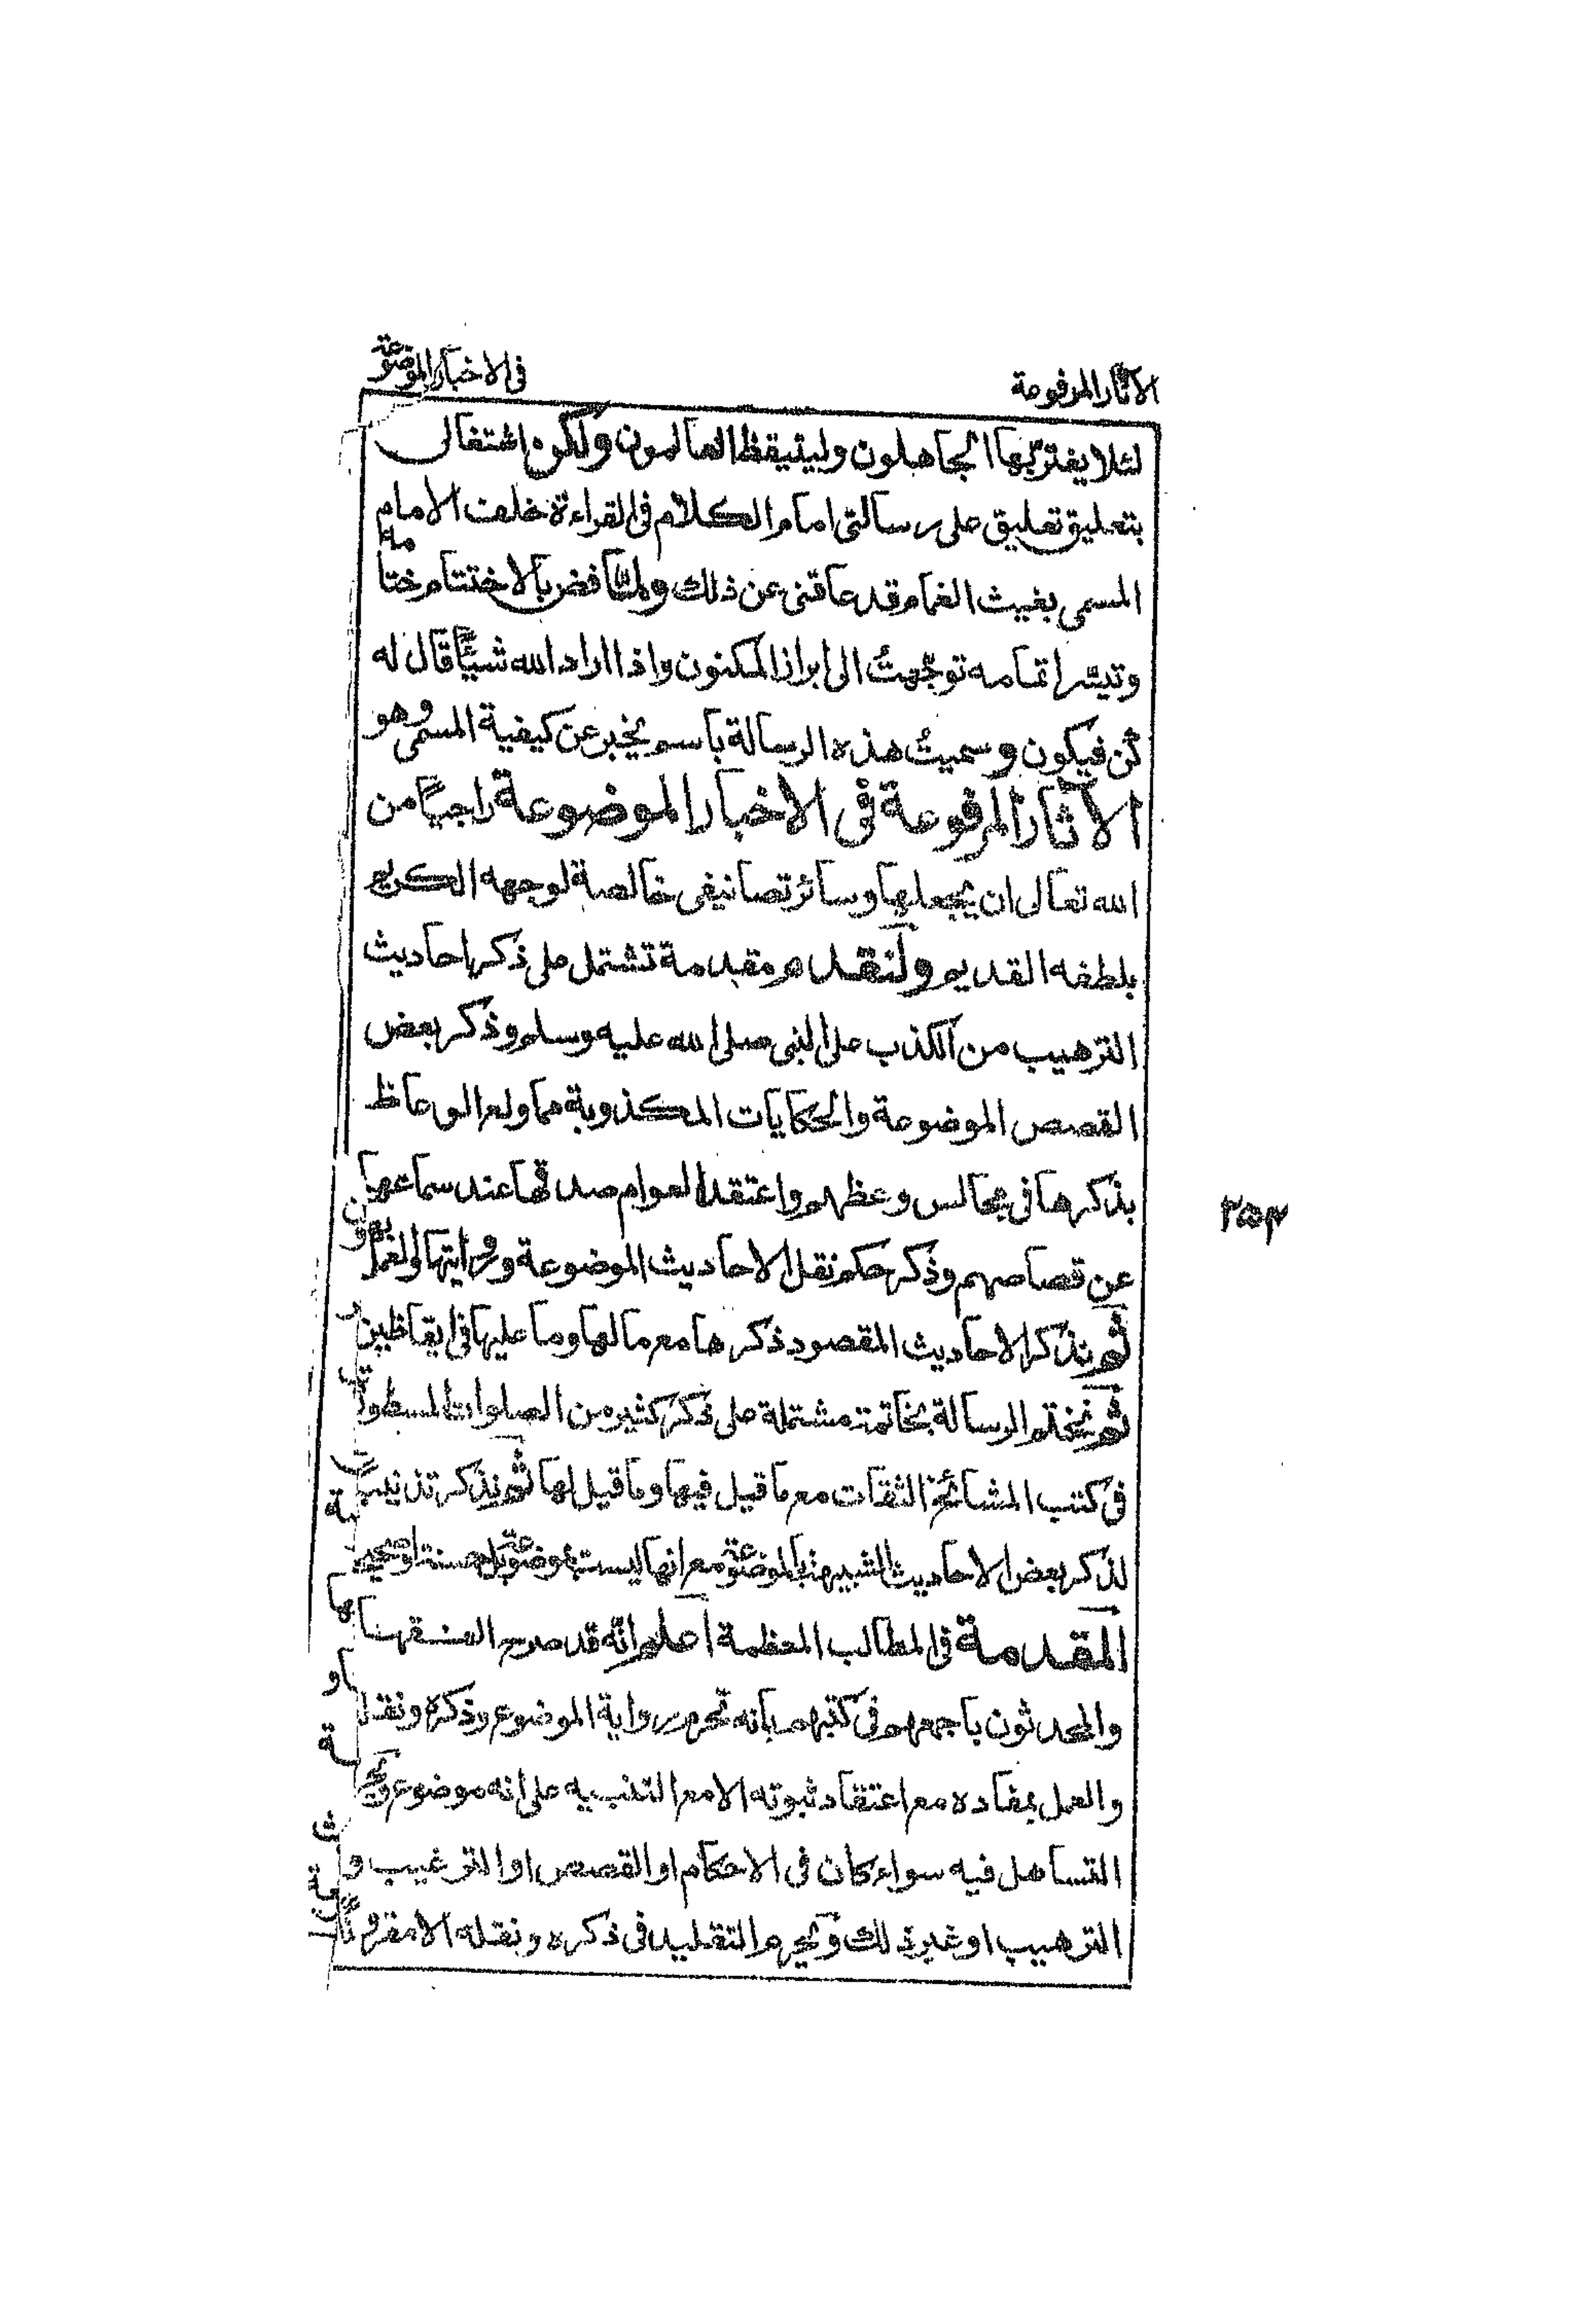 الآثار المرفوعة
فى الاخبار الموضوعة
لئلا يغتر بها الجاهلون وليتيقظ العالمون ولكن اشتغالى
بتعليق تعليق على رسالتى امام الكلام فى القراءة خلف الامام
المسمى بغيث الغمام قد عاقنى عن ذلك ولما فض بالاختتام ختامه
وتيسر اتمامه توجهتُ الى ابراز المكنون واذا اراد الله شيئًا قال له
كن فيكون وسميتُ هذه الرسالة باسم يخبر عن كيفية المسمى وهو
الآثار المرفوعة فى الاخبار الموضوعة راجيًا من
الله تعالى ان يجعلها وسائر تصانيفى خالصة لوجهه الكريم
بلطفه القديم ولنقدم مقدمة تشتمل على ذكر احاديث
الترهيب من الكذب على النبى صلى الله عليه وسلم وذكر بعض
القصص الموضوعة والحكايات المكذوبة مما ولع الوعاظ
بذكرها فى مجالس وعظهم واعتقد العوام صدقها عند سماعها
عن قصاصهم وذكر حكم نقل الاحاديث الموضوعة وروايتها والعمل
ثم نذكر الاحاديث المقصود ذكرها مع مالها وما عليها فى ايقاظين
ثم نختم الرسالة بخاتمة مشتملة على ذكر كثير من الصلوات المسطو
فى كتب المشائخ الثقات مع ما قيل فيها وما قيل لها ثم نذكر تذنيب
لذكر بعض الاحاديث الشبيهة بالموضوعة مع انها ليست بموضوعة بل حسنة او صحيح
المقدمة فى المطالب المعظمة اعلم انه قد صرح الفقها
والمحدثون باجمعهم فى كتبهم بانه تحرم رواية الموضوع وذكره ونقل
والعمل بمفاده مع اعتقاد ثبوته الا مع التنبيه على انه موضوع ويحر
التساهل فيه سواء كان فى الاحكام او القصص او الترغيب و
الترهيب او غير ذلك ويحرم التقليد فى ذكره ونقله الا مقرونًا